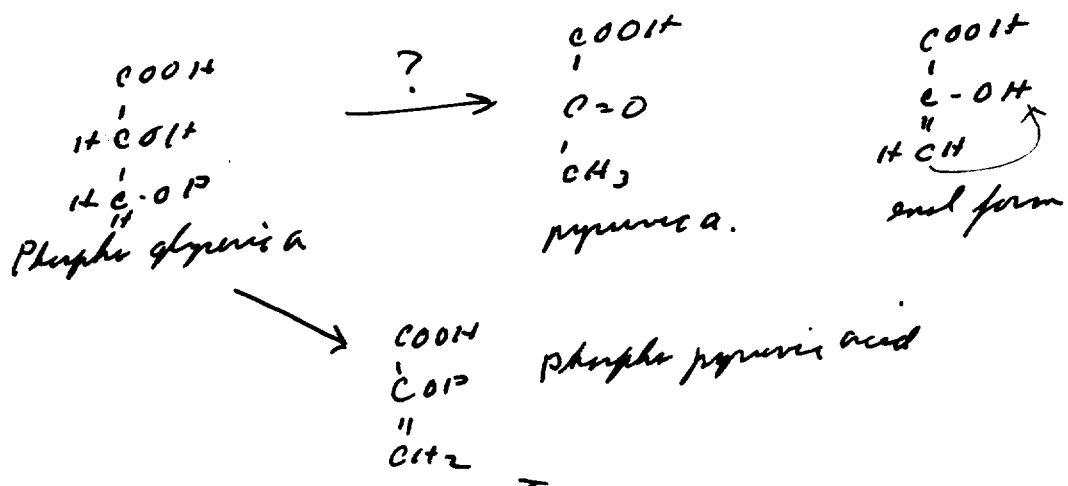 COOH
H C OH
H C - O P
H
Phospho glyceric a
?
COOH
C = O
CH3
pyruvic a.
COOH
C - OH
H C H
enol form
COOH
C O P
CH2
phospho pyruvic acid